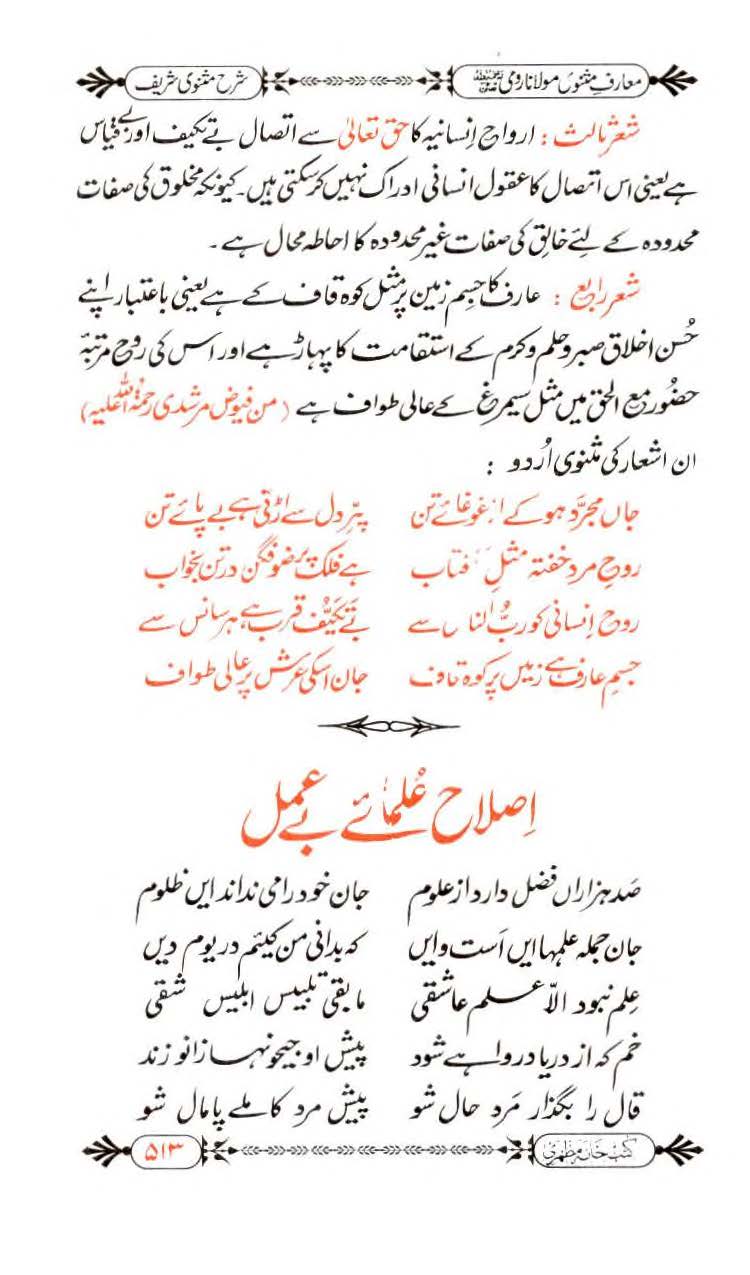 معارفِ مثنوی مولانا رومی شرح مثنوی شریف
شعر ثالث : ارواحِ اِنسانیہ کا حق تعالیٰ سے اتصال بے تکیف اور بے قیاس
ہے یعنی اس اتصال کا عقول انسانی ادراک نہیں کرسکتی ہیں۔ کیونکہ مخلوق کی صفات
محدودہ کے لئے خالق کی صفات غیر محدودہ کا احاطہ محال ہے۔
شعر رابع : عارف کا جسم زمین پر مثل کوہ قاف کے ہے یعنی باعتبار اپنے
حُسن اخلاق صبر و حلم و کرم کے استقامت کا پہاڑ ہے اور اس کی روح مرتبہٗ
حضُور مع الحق میں مثل سیمرغ کے عالی طواف ہے (من فیوض مرشدی رحمۃ اللہ علیہ)
ان اشعار کی مثنوی اُردو :
جاں مجرَّد ہو کے از غوغائے تن پرِّ دل سے اڑتی ہے بے پائے تن
روحِ مرد خفتہ مثلِ فتاب ہے فلک پر ضو فگن در تن بخواب
روح اِنسانی کو ربُّ النا س سے بے تکیُّف قرب ہے ہر سانس سے
جسمِ عارف ہے زمیں پر کوہ قاف جان اسکی عرش پر عالی طواف
اِصلاح عُلمائے بے عمل
صَد ہزاراں فضل دارد از علوم جان خود را می نداند ایں ظلوم
جان جملہ علمہا ایں اَست و ایں کہ بدانی من کیئم در یوم دیں
عِلم نبود الاّ علم عاشقی ما بقی تلبیس ابلیس شقی
خم کہ از دریا در و راہے شود پیش او جیحونہا زانو زند
قال را بگذار مَرد حال شو پیش مرد کاملے پامال شو
کتب خانہ مظہری ۵۱۳